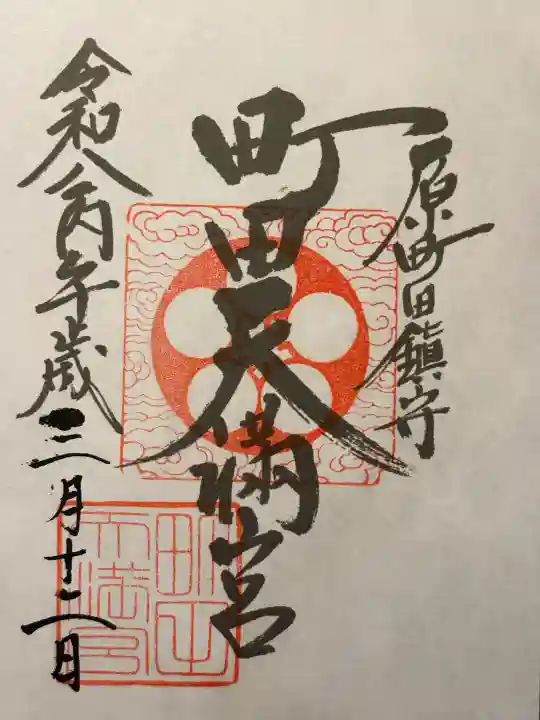 原町田鎮守
町田天満宮
令和八丙午歳
三月十二日
町田天満宮